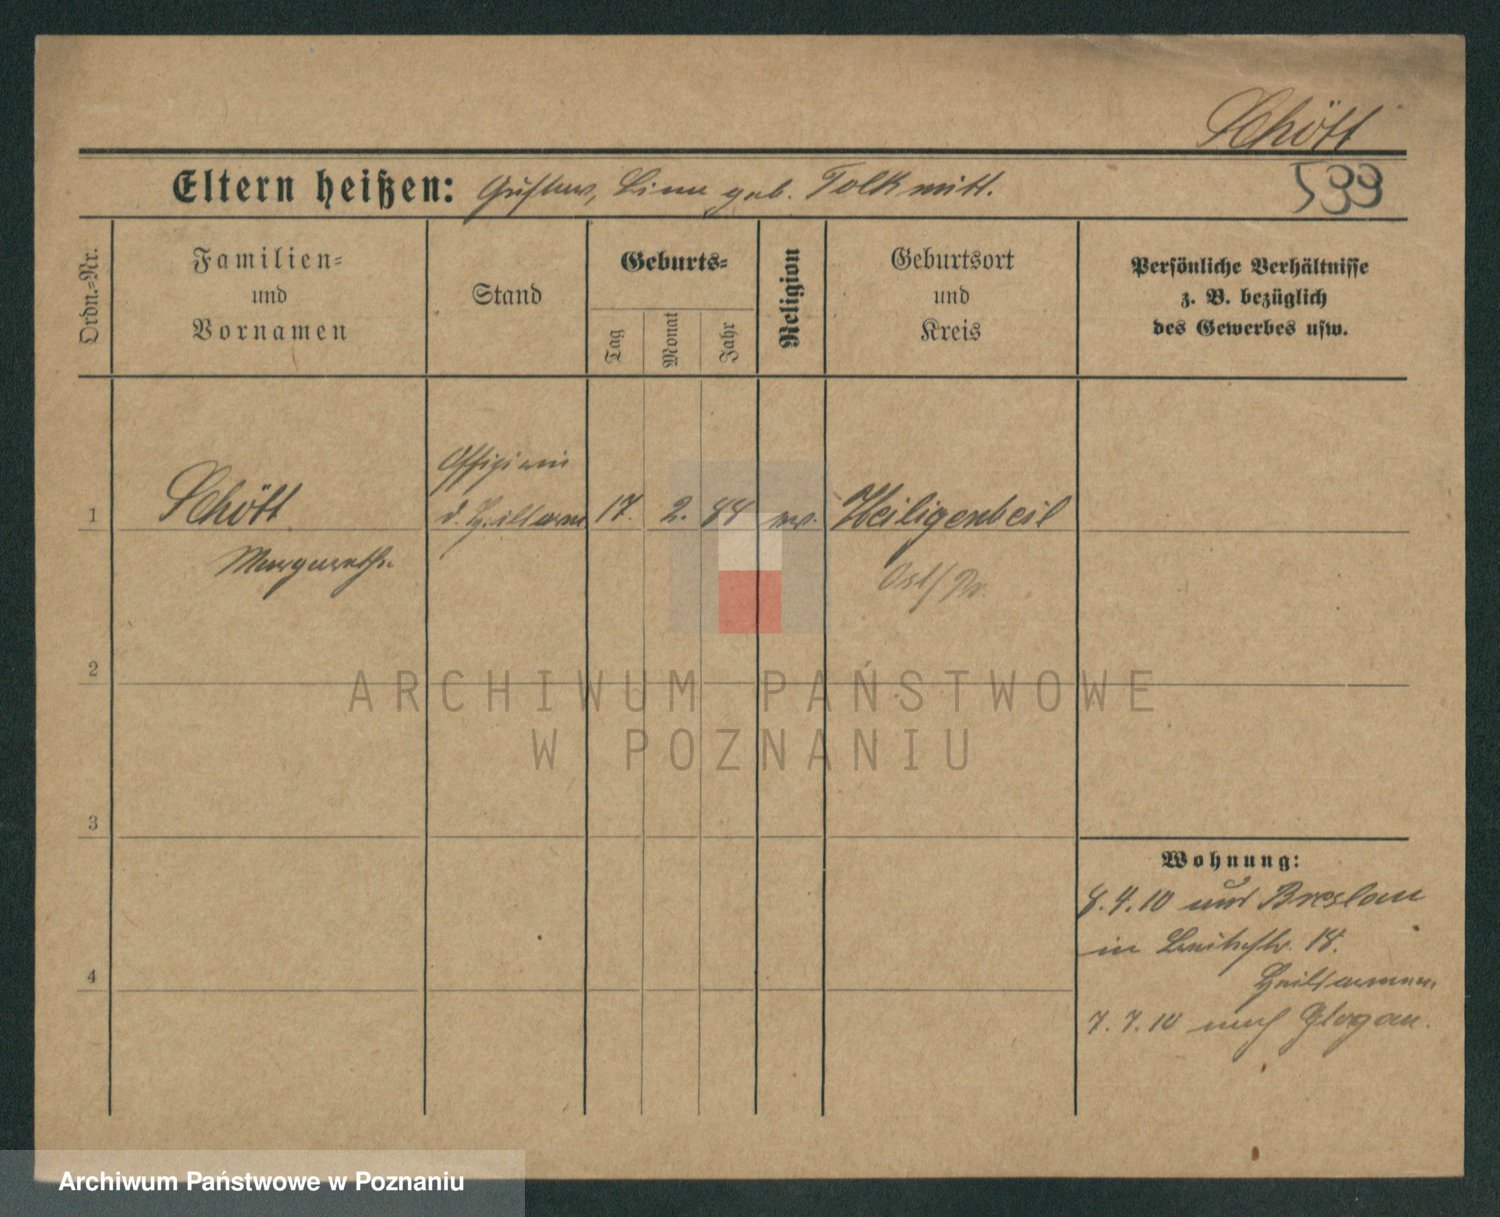 Schött
Eltern heißen: Gustav, Lina geb. Tolkmitt.
599
Ordn.-Nr.
Familien-
und
Vornamen
Stand
Geburts-
Tag
Monat
Jahr
Religion
Geburtsort
und
Kreis
Persönliche Verhältnisse
z. B. bezüglich
des Gewerbes usw.
Offizierin
1 Schött d. Heilsarm. 17. 2. 84 ev. Heiligenbeil
Margarethe
Ost/Pr.
2
ARCHIWUM PAŃSTWOWE
W POZNANIU
3
Wohnung:
8.4.10 aus Breslau
in Breitestr. 18.
4
Heilsarmee
7.7.10 nach Glogau.
Archiwum Państwowe w Poznaniu